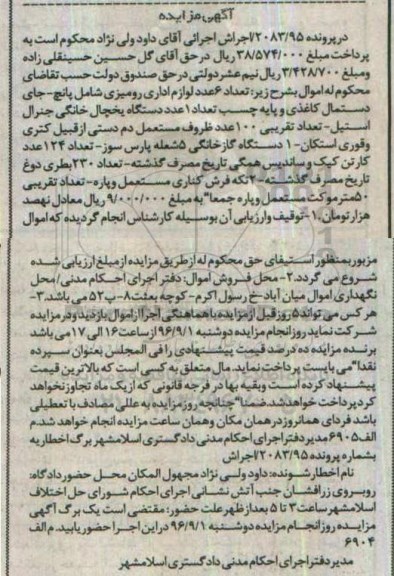 آگهی مزایده
در پرونده ۲۰۸۳/۹۵/اجراش اجرائی آقای داود ولی نژاد محکوم است به
پرداخت مبلغ ۳۸/۵۷۴/۰۰۰ ریال در حق آقای گل حسین حسینقلی زاده
ومبلغ ۳/۴۲۸/۷۰۰ ریال نیم عشر دولتی در حق صندوق دولت حسب تقاضای
محکوم له اموال بشرح زیر: تعداد ۶ عدد لوازم اداری رومیزی شامل پانچ-جای
دستمال کاغذی و پایه چسب تعداد ۱ عدد دستگاه یخچال خانگی جنرال
استیل- تعداد تقریبی ۱۰۰ عدد ظروف مستعمل دم دستی از قبیل کتری
وقوری استکان-۱ دستگاه گازخانگی ۵ شعله پارس سوز- تعداد ۱۲۴ عدد
کارتن کیک و ساندیس همگی تاریخ مصرف گذشته- تعداد ۲۳۰ بطری دوغ
تاریخ مصرف گذشته-۲ تکه فرش کناری مستعمل وپاره- تعداد تقریبی
۵۰ متر موکت مستعمل وپاره جمعا" به مبلغ ۹/۰۰۰/۰۰۰ ریال معادل نهصد
هزار تومان.۱-توقیف وارزیابی آن بوسیله کارشناس انجام گردیده که اموال
مزبور بمنظور استیفای حق محکوم له از طریق مزایده از مبلغ ارزیابی شده
شروع می گردد.۲- محل فروش اموال: دفتر اجرای احکام مدنی/محل
نگهداری اموال میان آباد-خ رسول اکرم- کوچه بعثت۸-پ۵۲ می باشد.۳-
هر کس می تواند ۵ روز قبل از مزایده با هماهنگی اجرا از اموال بازدید ودر مزایده
شرکت نماید روز انجام مزایده دوشنبه ۹۶/۹/۱ از ساعت ۱۶ الی ۱۷ می باشد
برنده مزایده ده درصد قیمت پیشنهادی را فی المجلس بعنوان سپرده
نقدا" می بایست پرداخت نماید. مال متعلق به کسی است که بالاترین قیمت
پیشنهاد کرده است وبقیه بها در فرجه قانونی که از یک ماه تجاوز نخواهد
کرد پرداخت خواهد شد.ضمنا" چنانچه روز مزایده به عللی مصادف با تعطیلی
باشد فردای همانروز در همان مکان وهمان ساعت مزایده انجام خواهد شد.م
الف ۶۹۰۵ مدیر دفتر اجرای احکام مدنی دادگستری اسلامشهر برگ اخطاریه
بشماره پرونده ۲۰۸۳/۹۵/اجراش
نام اخطار شونده: داود ولی نژاد مجهول المکان محل حضور دادگاه:
روبروی زرافشان جنب آتش نشانی اجرای احکام شورای حل اختلاف
اسلامشهر ساعت ۳ تا ۵ بعد از ظهر علت حضور: مقتضی است یک برگ آگهی
مزایده روز انجام مزایده دوشنبه ۹۶/۹/۱ در این اجرا حضور یابید. م الف
۶۹۰۴
مدیر دفتر اجرای احکام مدنی دادگستری اسلامشهر